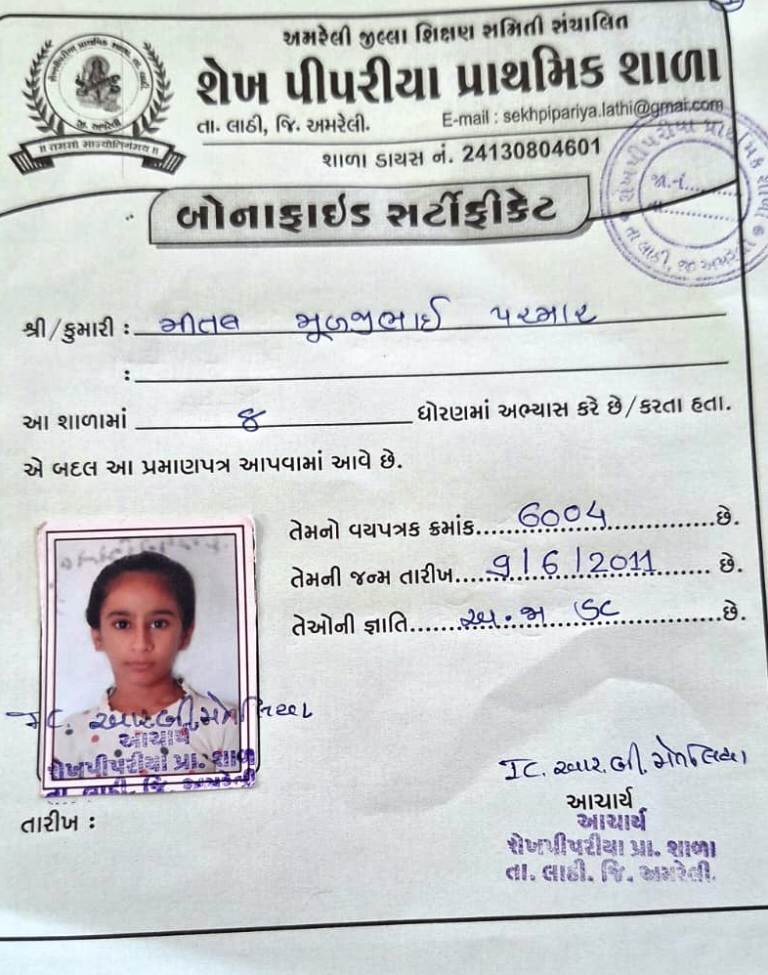 અમરેલી જીલ્લા શિક્ષણ સમિતી સંચાલિત
શેખ પીપરીયા પ્રાથમિક શાળા
તા. લાઠી, જિ. અમરેલી.
E-mail : sekhpipariya.lathi@gmai.com
શાળા ડાયસ નં. 24130804601
જી. અમરેલી
॥ તમસો મા જ્યોતિર્ગમય ॥
શેખપીપરીયા પ્રાથમિક શાળા
જા.નં.
તા લાઠી, જી અમરેલી
બોનાફાઇડ સર્ટીફીકેટ
શ્રી/કુમારી : મીતલ મૂળજીભાઈ પરમાર
:
આ શાળામાં ૪ ધોરણમાં અભ્યાસ કરે છે/કરતા હતા.
એ બદલ આ પ્રમાણપત્ર આપવામાં આવે છે.
તેમનો વયપત્રક ક્રમાંક 6004 છે.
તેમની જન્મ તારીખ 9/6/2011 છે.
તેઓની જ્ઞાતિ અ.જા SC છે.
આચાર્ય
શેખપીપરીયા પ્રા. શાળા
તા. લાઠી. જિ. અમરેલી
તારીખ :
IC. આર.બી.
આચાર્ય
આચાર્ય
શેખપીપરીયા પ્રા. શાળા
તા. લાઠી. જિ. અમરેલી.